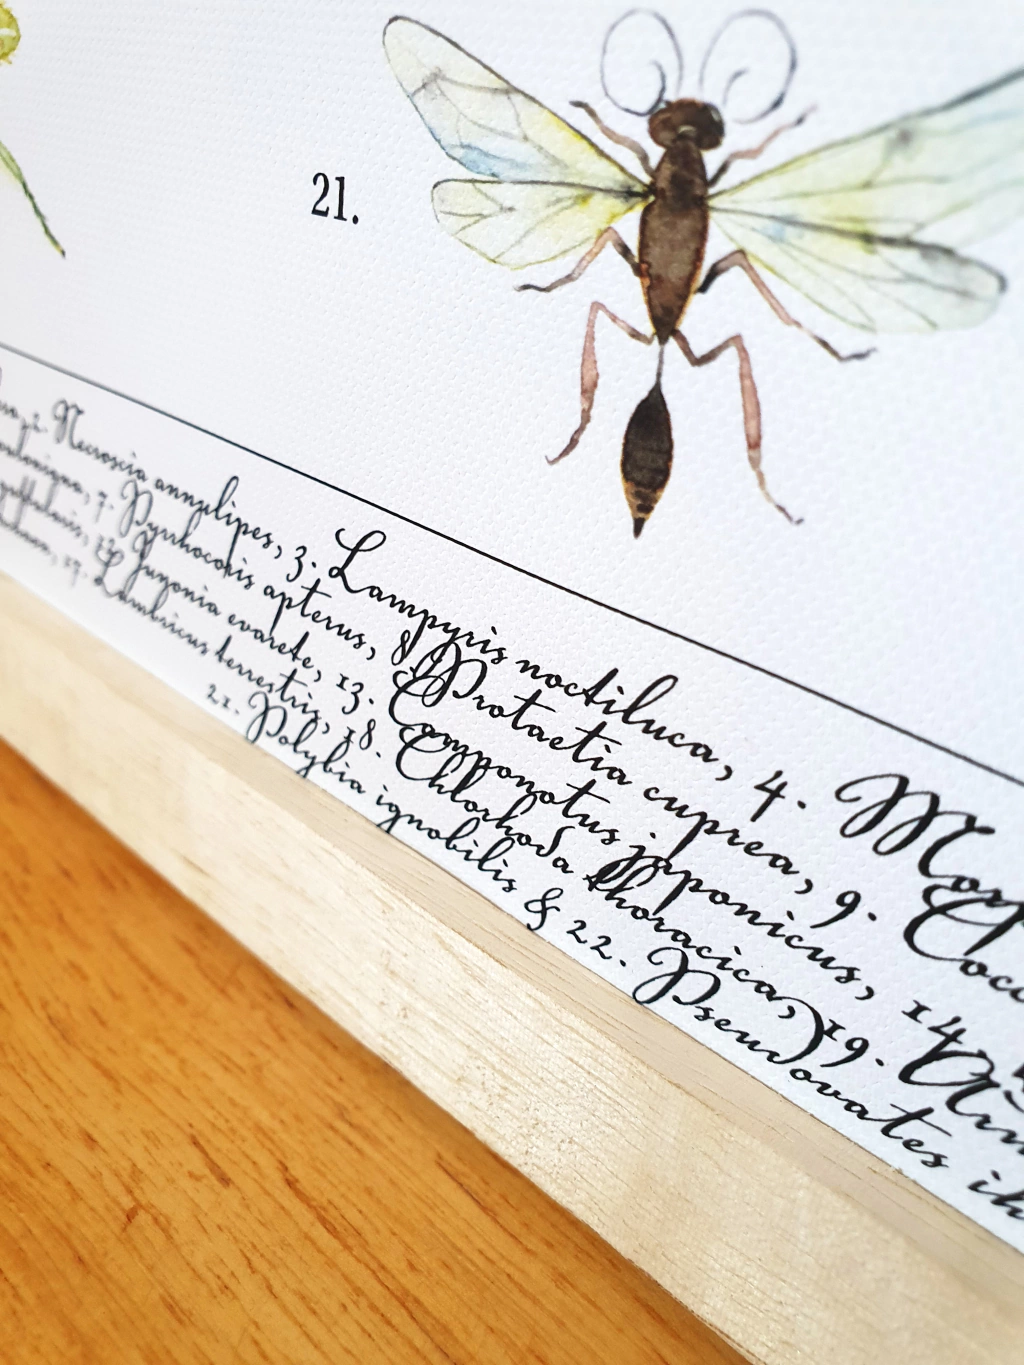 21.
2. Necroscia annulipes, 3. Lampyris noctiluca, 4.
7. Pyrrhocoris apterus, 8. Protaetia cuprea, 9.
Junonia evarete, 13. Camponotus japonicus, 14.
17. Lumbricus terrestris, 18. Chlorhoda thoracica, 19.
21. Polybia ignobilis & 22. Pseudovates